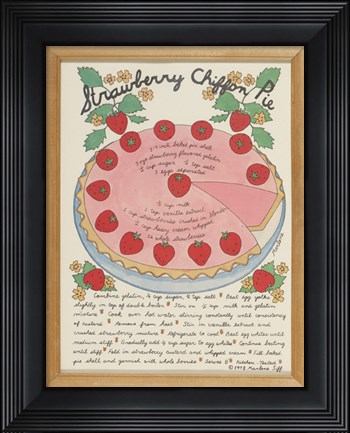 Strawberry Chiffon Pie
1 9 inch baked pie shell
strawberry flavored gelatin
cup sugar ¼ tsp salt
3 eggs separated
½ cup milk
1 tsp vanilla extract
1 cup strawberries crushed in blender
½ cup heavy cream, whipped
12 whole strawberries
Marlena
Combine gelatin, ¼ cup sugar, ¼ tsp salt Beat egg yolks
slightly in top of double boiler Stir in ½ cup milk and gelatin
mixture Cook over hot water stirring constantly until consistency
of custard Remove from heat Stir in vanilla extract and
crushed strawberry mixture Refrigerate to cool Beat egg whites until
medium stiff Gradually add ¼ cup sugar to egg whites Continue beating
until stiff Fold in strawberry custard and whipped cream Fill baked
pie shell and garnish with whole berries Serves 8 Kitchen-Tested
© 1978 Marlena Siff